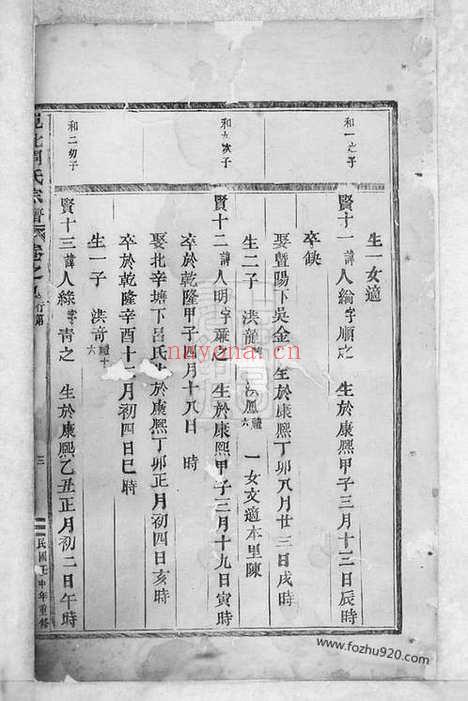 生一女適
和一之子
賢十一諱人綸字順之 生於康熙甲子三月十三日辰時
卒缺
娶暨陽下吳金 生於康熙丁卯八月廿三日戌時
生二子 洪龍 洪鳳禮六 一女文適本里陳
和九次子
賢十二諱人明字 之 生於康熙甲子三月十九日寅時
卒於乾隆甲子四月十八日 時
娶北辛塘下呂氏生於康熙丁卯正月初四日亥時
卒於乾隆辛酉十 月初四日巳時
生一子 洪奇禮十六
和二幼子
賢十三諱人綜字青之 生於康熙乙丑正月初二日午時
氏宗譜 卷之 行第
三
民國壬申年重修
nayona.cn
www.fozhu920.com